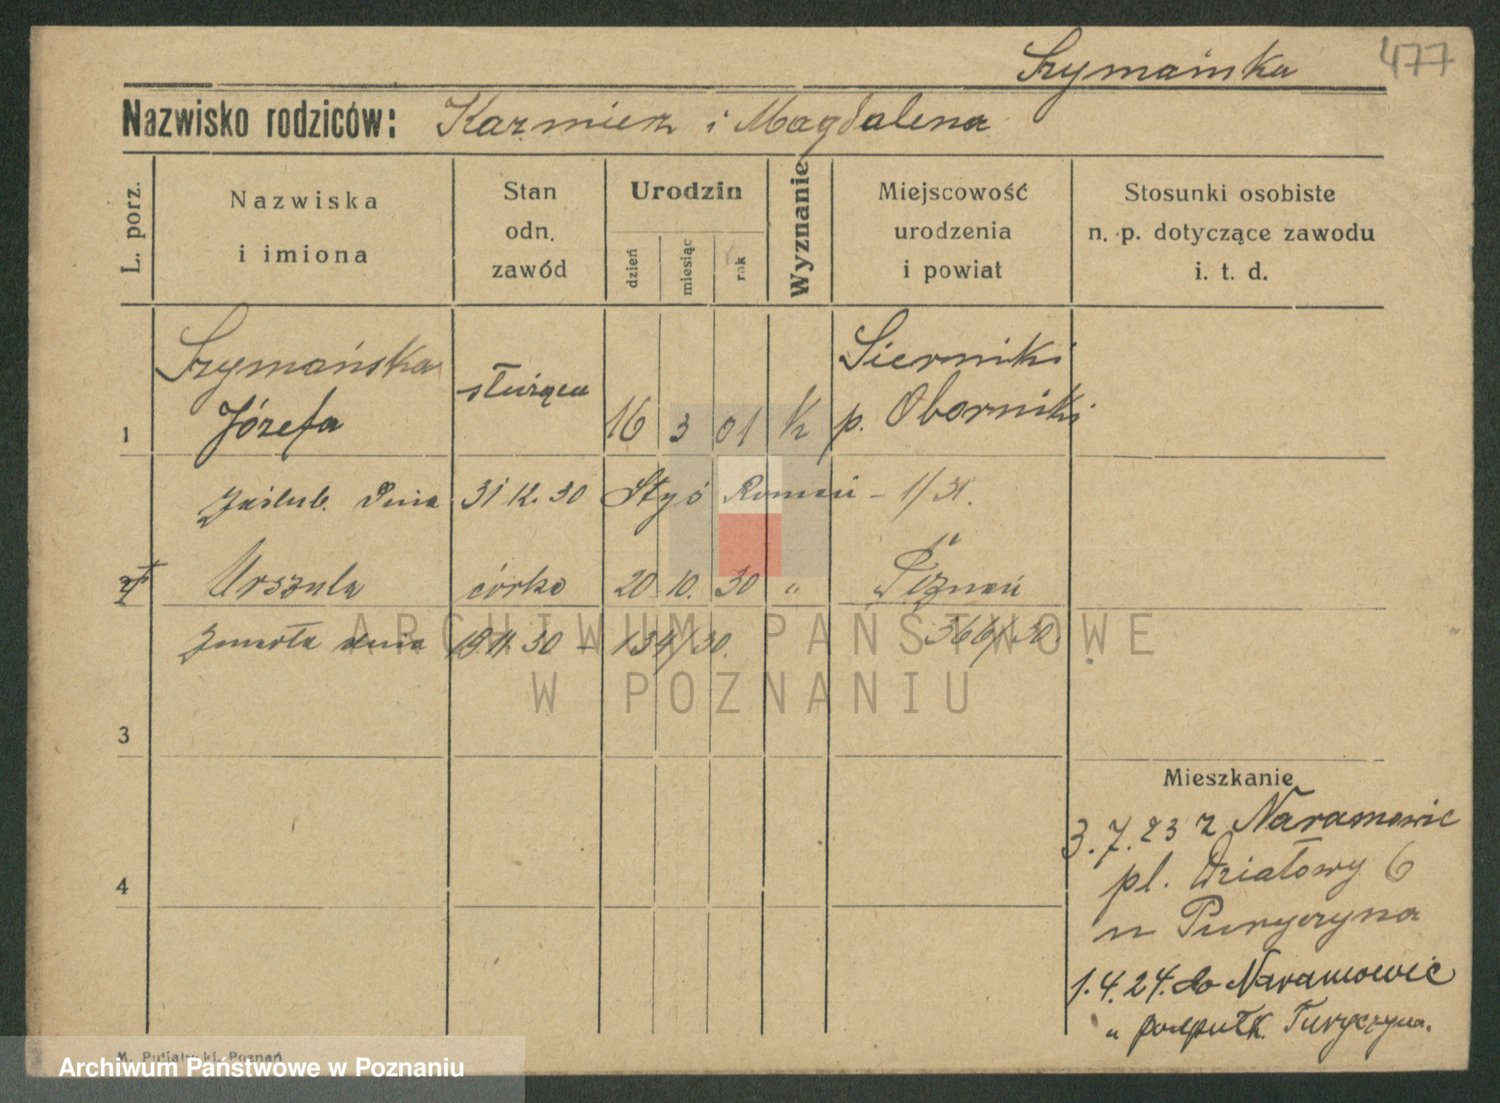 Szymańska 477
Nazwisko rodziców: Kazmierz i Magdalena
L. porz.
Nazwiska
i imiona
Stan
odn.
zawód
Urodzin
dzień
miesiąc
rok
Wyznanie
Miejscowość
urodzenia
i powiat
Stosunki osobiste
n. p. dotyczące zawodu
i. t. d.
1 Szymańska
Józefa
służąca
16 3 01 K
Sierniki
p. Oborniki
Zaślub. dnia 31 12. 30 Styś Roman – 1/31.
2 Urszula córka 20 10. 30 " Poznań
366/30.
Zmarła dnia 15.11.30 – 134/30.
3
4
Mieszkanie
3.7.23 z Naramowic
pl. Działowy 6
u
1.4.24. do Naramowic
u
M. Putiatycki, Poznań
ARCHIWUM PAŃSTWOWE
W POZNANIU
Archiwum Państwowe w Poznaniu